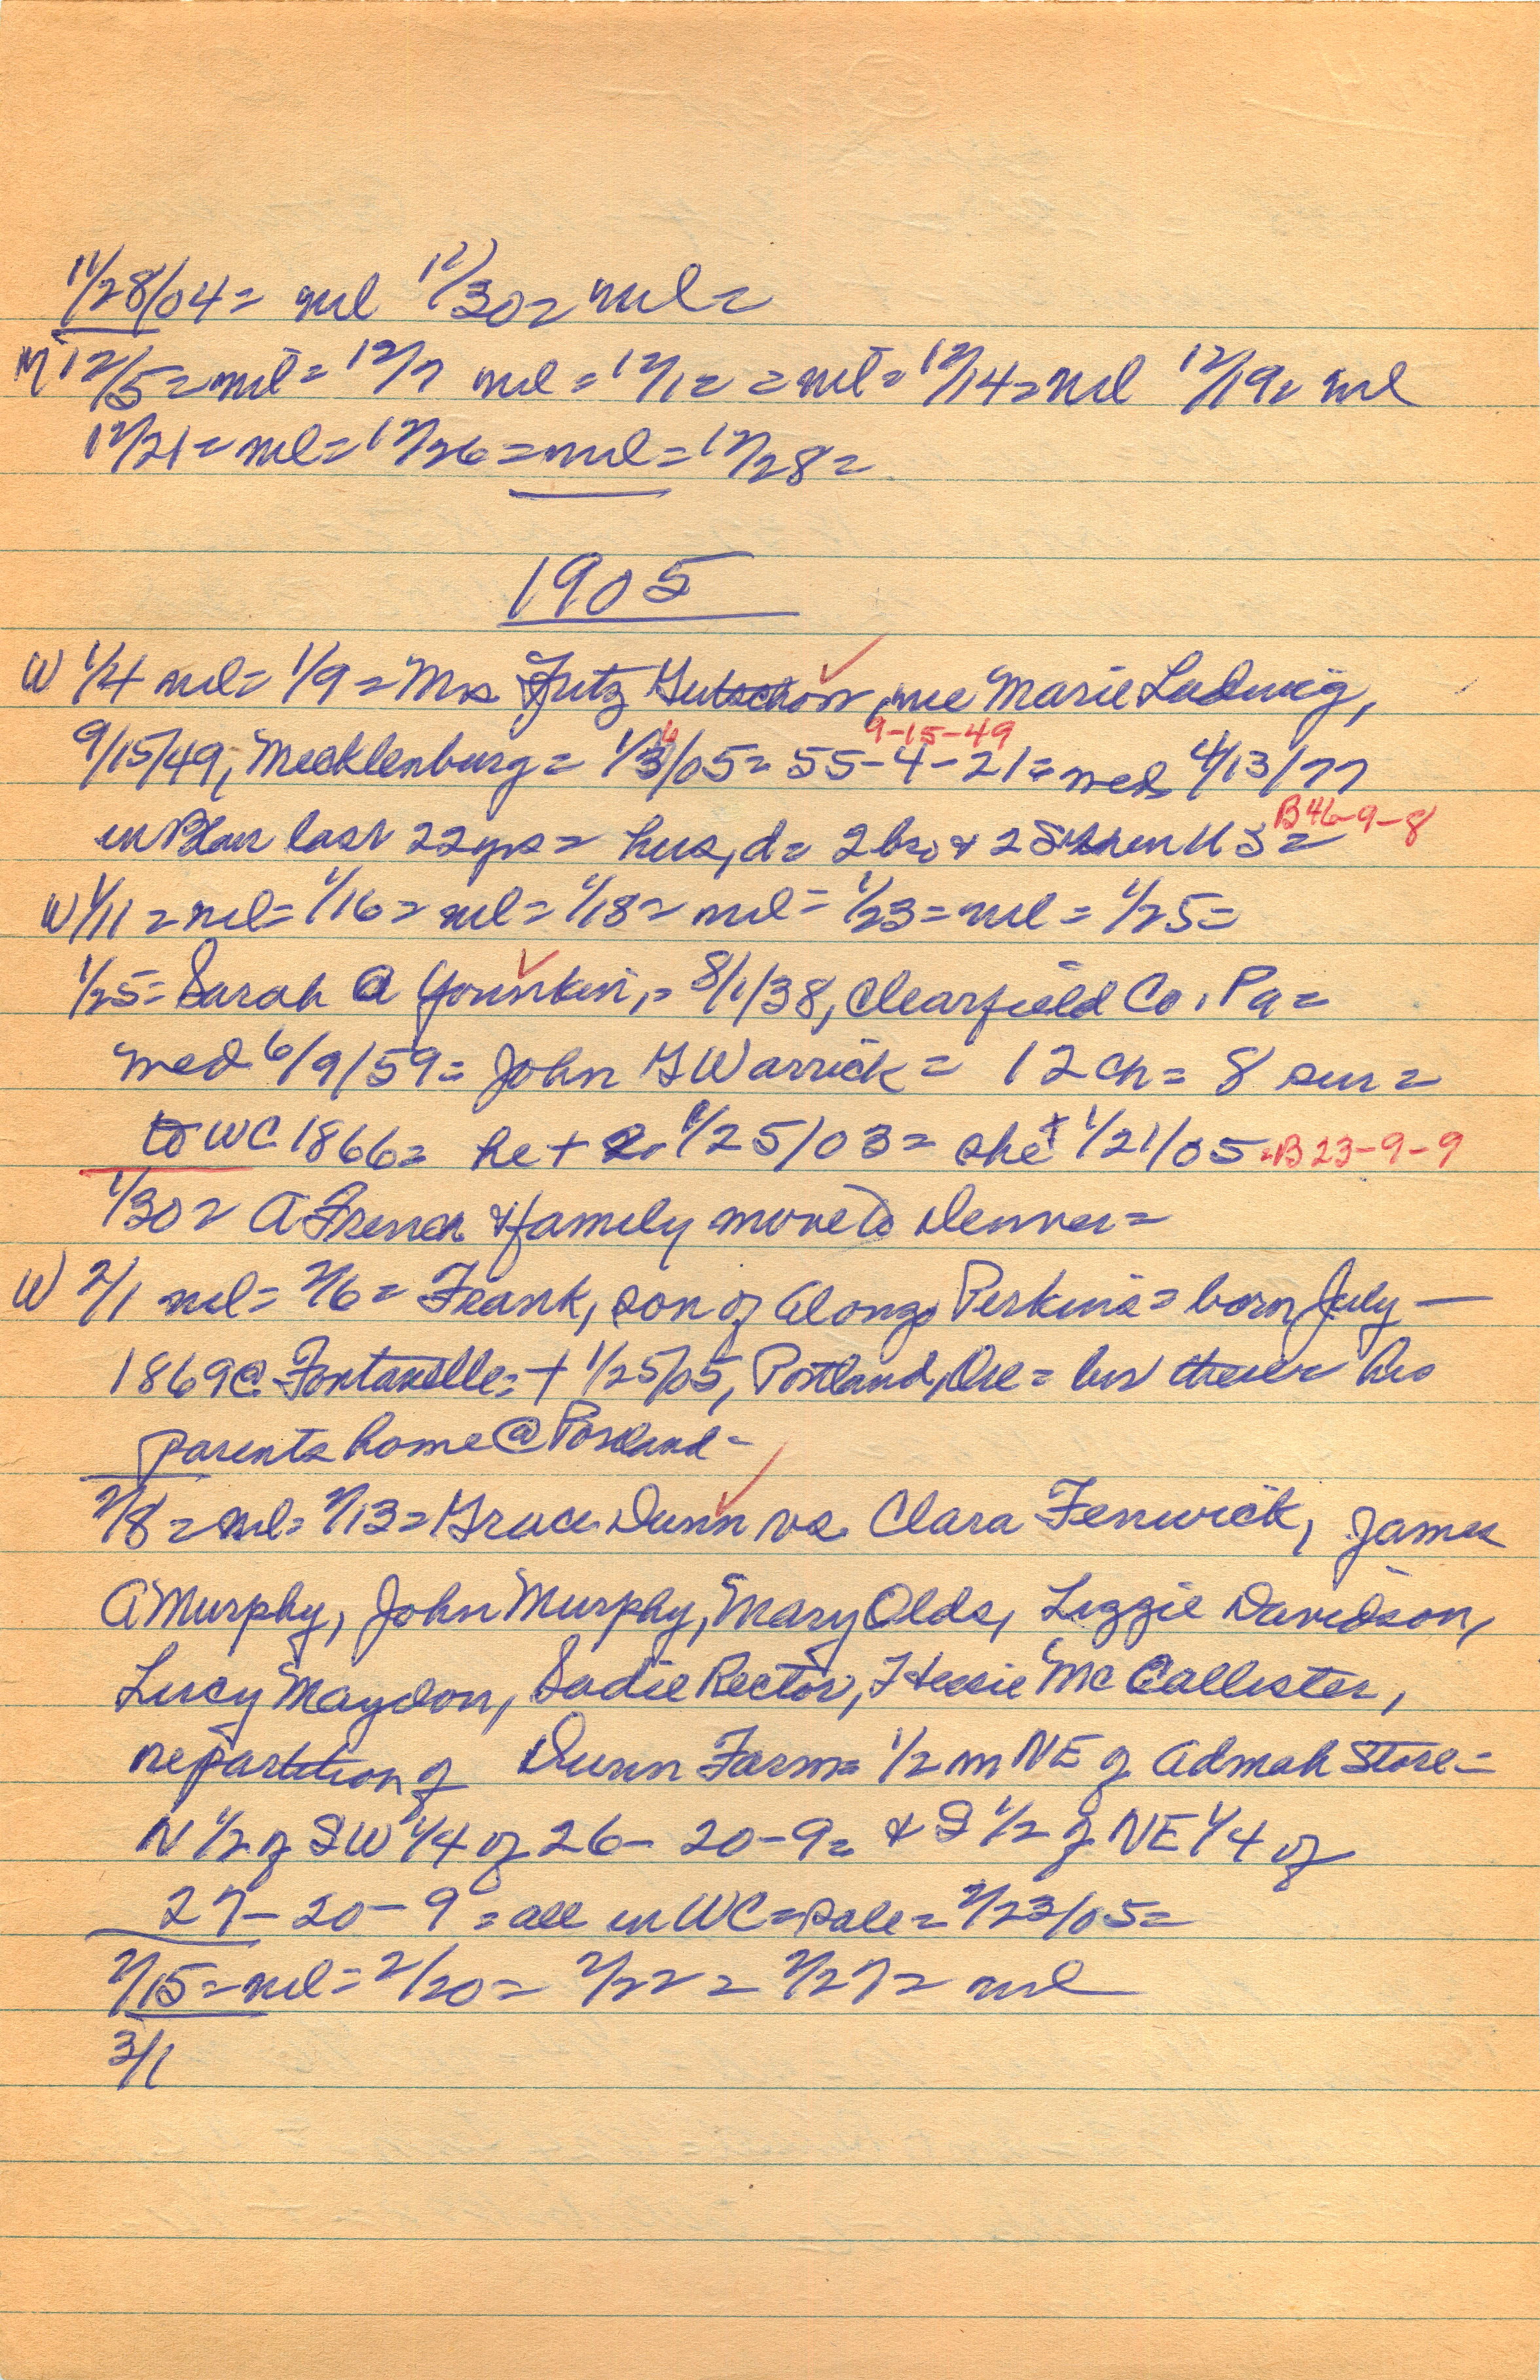 11/28/04= nil 11/30= nil=
M 12/5= nil= 12/7 nil= 12/12 = nil= 12/14= nil 12/19= nil
12/21= nil= 12/26= nil= 12/28=
1905
W 1/4 nil= 1/9= Mrs Fritz Gutschow, nee Marie Ladwig,
9-15-49
9/15/49, Mecklenburg= 1/6/05= 55-4-21= med 4/13/77
B46-9-8
in Blair last 22yrs= hus, d= 2 bro & 2 Sis in US=
W 1/11= nil= 1/16= nil= 1/18= nil= 1/23= nil= 1/25=
1/25= Sarah A Younkin,= 8/1/38, Clearfield Co, Pa=
med 6/9/59= John G Warrick= 12 ch= 8 sur=
to WC 1866= he + 1/25/03= she + 1/21/05= B23-9-9
1/30= A French & family move to Denver=
W 2/1 nil= 2/6= Frank, son of Alonzo Perkins= born July —
1869@ Fontanelle= + 1/25/05, Portland, Ore= his
parents home @ Portland-
2/8= nil= 2/13= Grace Dunn vs. Clara Fenwick, James
A Murphy, John Murphy, Mary Olds, Lizzie Davidson,
Lucy Maydon, Sadie Rector, McCallister,
re partition of Dunn Farm= 1/2 m NE of Admah Store=
N 1/2 of SW 1/4 of 26-20-9= & S 1/2 of NE 1/4 of
27-20-9= all in WC= sale= 2/23/05=
2/15= nil= 2/20= 2/22= 2/27= nil
3/1